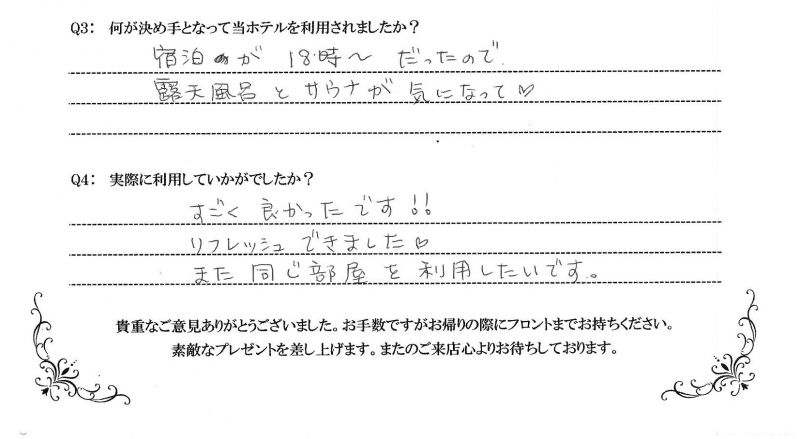 Q3： 何が決め手となって当ホテルを利用されましたか？
宿泊が 18時〜 だったので、
露天風呂とサウナが気になって♡
Q4： 実際に利用していかがでしたか？
すごく良かったです!!
リフレッシュできました♡
また同じ部屋を利用したいです。
貴重なご意見ありがとうございました。お手数ですがお帰りの際にフロントまでお持ちください。
素敵なプレゼントを差し上げます。またのご来店心よりお待ちしております。